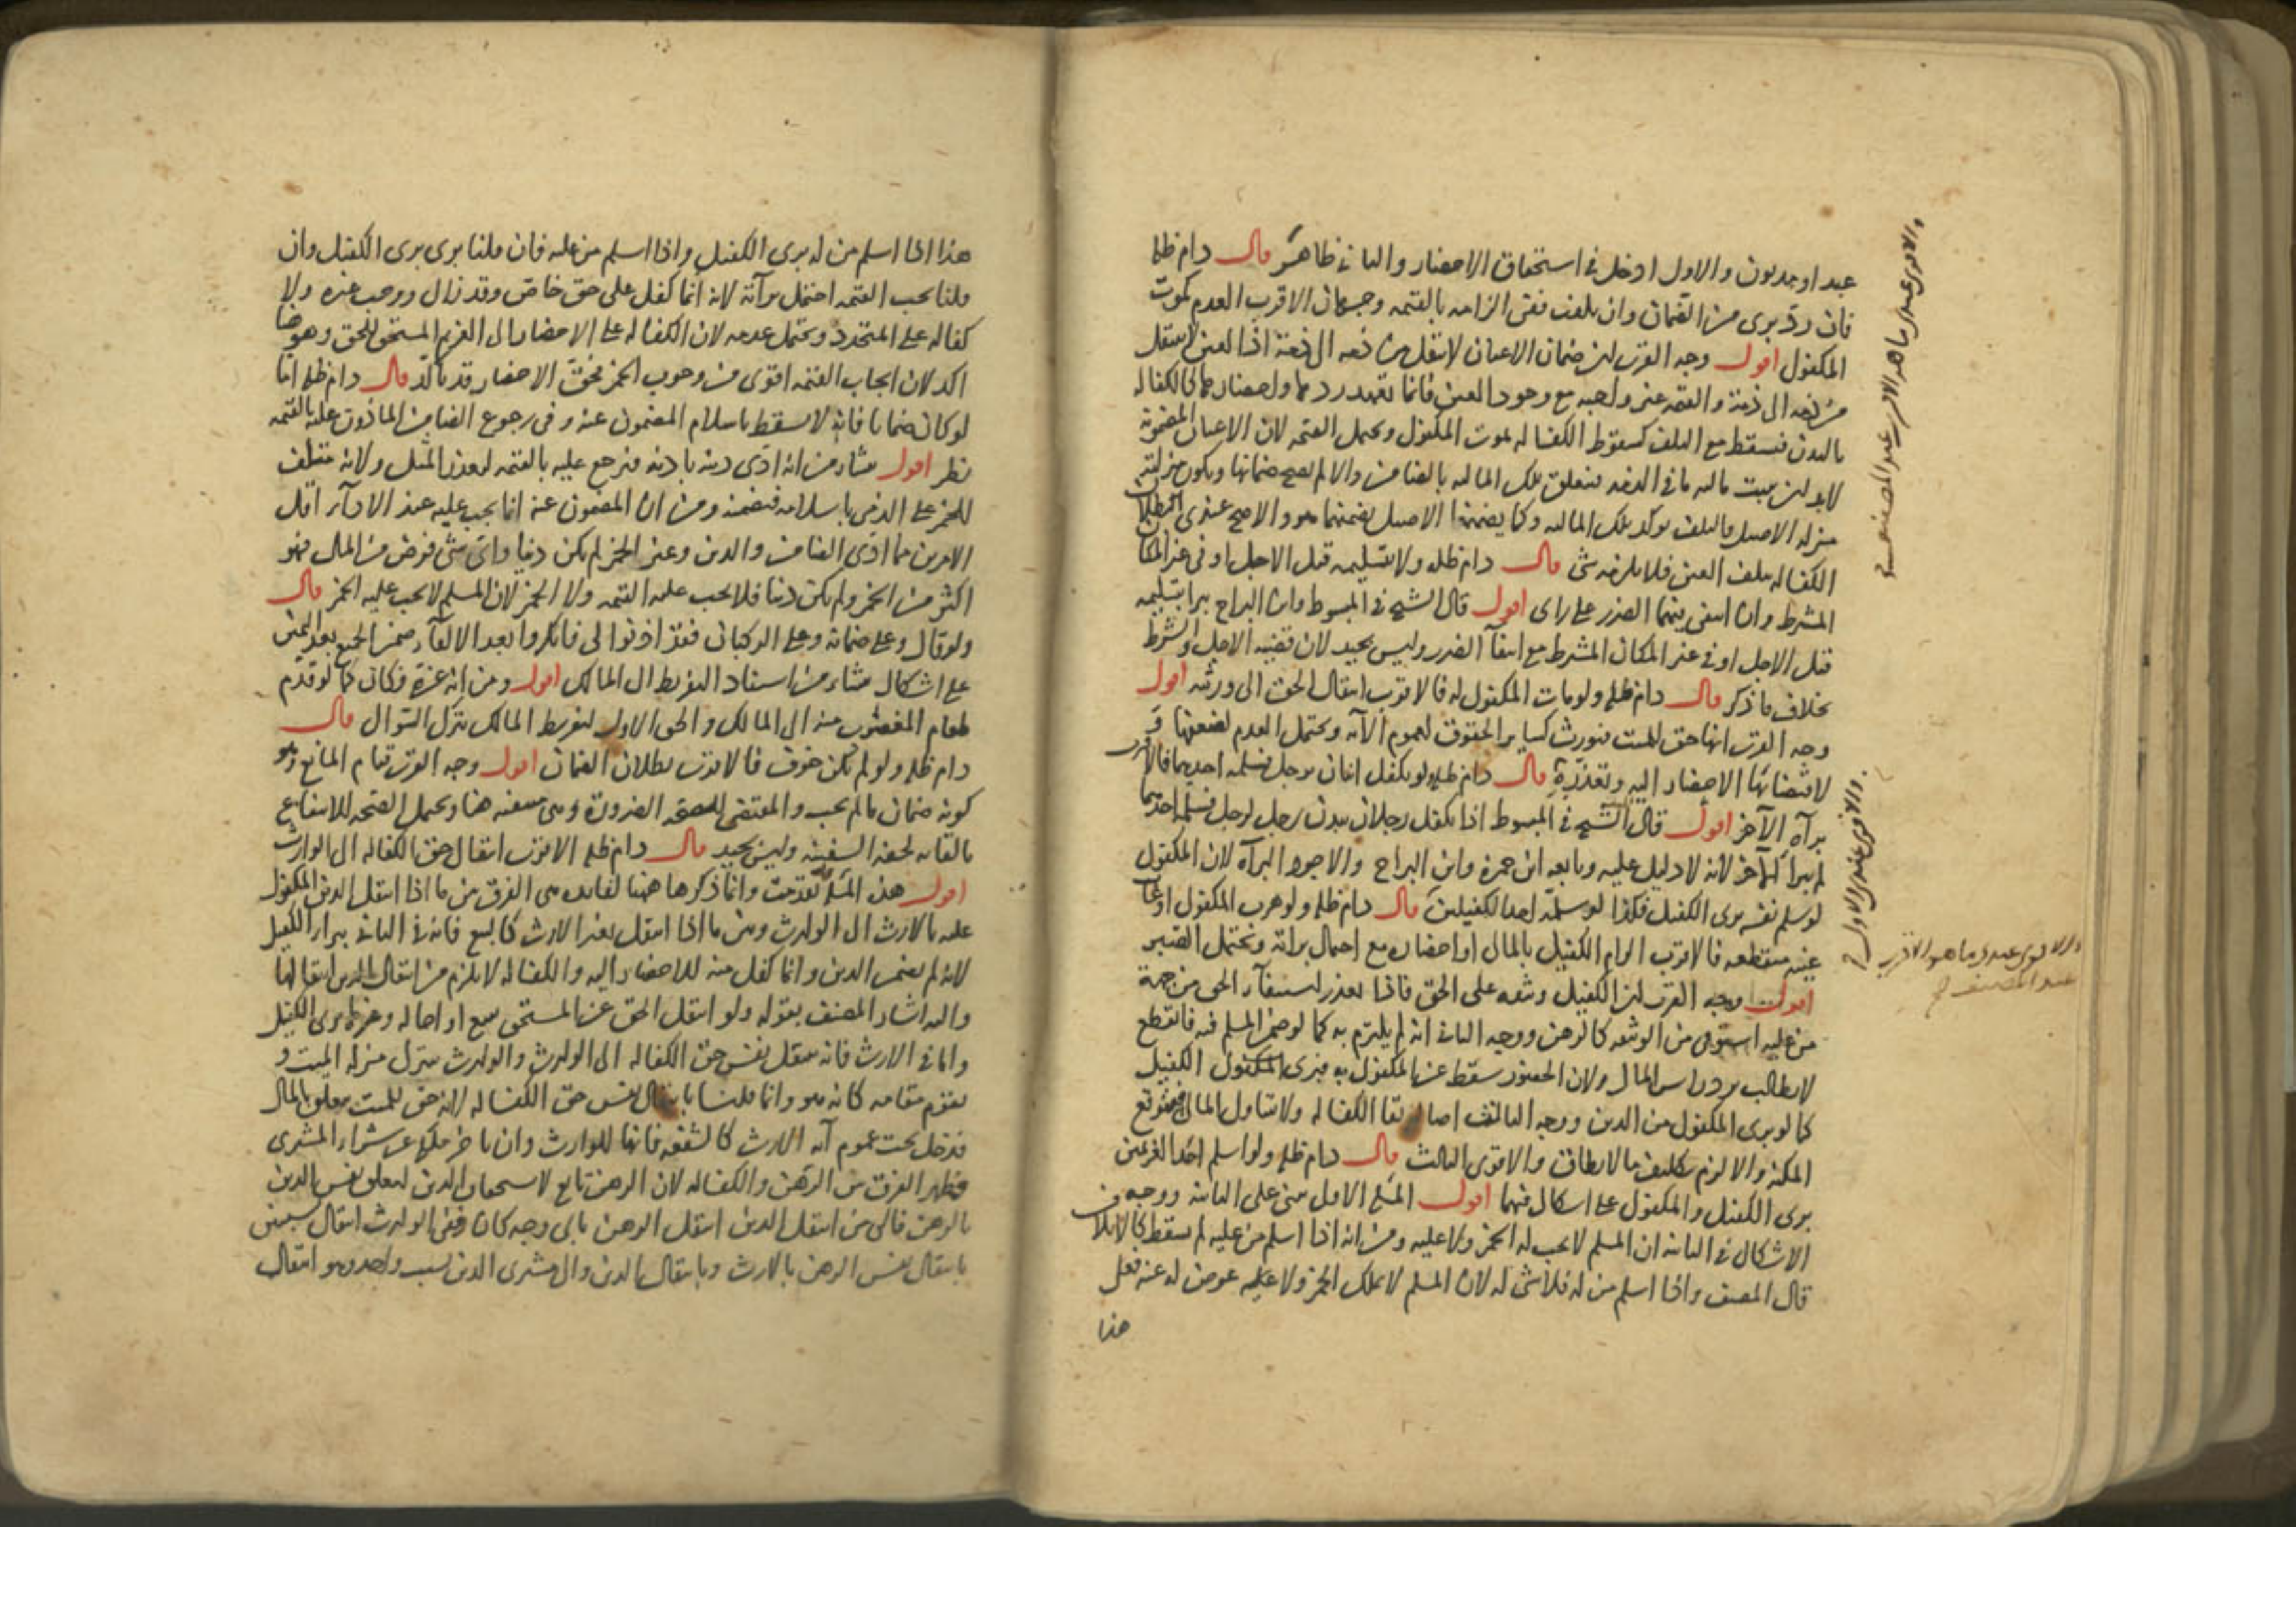 عبد او مديون والاول ادخل في استحقاق الاحضار والثاني ظاهر قال دام ظله
فان رد برى من الضمان وان تلف ففي الزامه بالقيمه وجهان الاقرب العدم كموت
المكفول اقول وجه القرب ان ضمان الاعيان لا ينتقل من ذمه الى ذمة اذ العين لا تنتقل
من ذمه الى ذمة والقيمه غير واجبه مع وجود العين فانما تعهد ردها واحضارها كالكفاله
بالبدن فتسقط مع التلف كسقوط الكفاله بموت المكفول ويحتمل القيمه لان الاعيان المضمونة
لابد ان يثبت ماليه ما في الذمه فتعلق تلك الماليه بالضامن والا لم يصح ضمانها ويكون منزلته
منزله الاصيل والتلف يوكد تلك الماليه وكما يضمنها الاصيل يضمنها هو والاصح عندي بطلان
الكفاله بتلف العين فلا يلزمه شى قال دام ظله ولا بتسليمه قبل الاجل او في غير المكان
المشترط وان انتفى فيهما الضرر على راى اقول قال الشيخ في المبسوط وابن البراج يبرا بتسليمه
قبل الاجل او في غير المكان المشترط مع انتفآ الضرر وليس بجيد لان قضيه الاجل والشرط
بخلاف ما ذكر قال دام ظله ولو مات المكفول له فالاقرب انتقال الحق الى ورثته اقول
وجه القرب انها حق للميت فيورث كساير الحقوق لعموم الآيه ويحتمل العدم لضعفها و
لاقتضائها الاحضار اليه وتعذره قال دام ظله ولو تكفل اثنان برجل فسلمه احدهما فالاقرب
برآة الآخر اقول قال الشيخ في المبسوط اذا تكفل رجلان ببدن رجل لرجل فسلمه احدهما
لم يبرا الآخر لانه لا دليل عليه وتابعه ابن حمزة وابن البراج والاجود البرآة لان المكفول
لو سلم نفسه برى الكفيل فكذا لو سلمه احد الكفيلين قال دام ظله ولو هرب المكفول او غاب
غيبه منقطعه فالاقرب الزام الكفيل بالمال او احضاره مع احتمال برآته ويحتمل الصبر
اقول وجه القرب ان الكفيل وثيقه على الحق فاذا تعذر استيفآء الحق من جهة
من عليه استوفى من الوثيقه كالرهن ووجه الثاني انه لم يلتزم به كما لو ضمن المسلم فيه فانقطع
لا يطالب برد راس المال ولان الحضور سقط عن المكفول به فبرى الكفيل
كما لو برى المكفول من الدين ووجه الثالث اصاله بقا الكفاله ولا تناول المال فيتوقع
المكنة والا لزم تكليف ما لا يطاق والاقوى الثالث قال دام ظله ولو اسلم احد الغريمين
برى الكفيل والمكفول على اشكال فيهما اقول المسئله الاولى مبنى على الثانيه ووجه
الاشكال في الثانيه ان المسلم لا يجب له الخمر ولا عليه ومن انه اذا اسلم من عليه لم يسقط كالاتلاف
قال المصنف واذا اسلم من له فلا شى له لان المسلم لا يملك الخمر ولا عليه عوض له عنه فعلى
هذا
والاقوى عندى ما هو الاقرب عند المصنف
والاقوى عندى الاول
والاقوى عندى ما هو الاقرب
عند المصنف
هذا اذا اسلم من له برى الكفيل واذا اسلم من عليه فان قلنا برى برى الكفيل وان
قلنا يجب القيمه احتمل برآته لانه انما كفل على حق خاص وقد زال ووجب غيره ولا
كفاله على المتجدد ويحتمل عدمه لان الكفاله على الاحضار الى الغريم المستحق للحق وهو هنا
اكد لان ايجاب القيمه اقوى من وجوب الخمر فحق الاحضار قد تاكد قال دام ظله اما
لو كان ضمانا فانه لا يسقط باسلام المضمون عنه وفي رجوع الضامن الماذون عليه بالقيمه
نظر اقول منشاؤه من انه ادى دينه باذنه فيرجع عليه بالقيمه لتعذر المثل ولانه متلف
للخمر على الذمى باسلامه فيضمنه ومن ان المضمون عنه انما يجب عليه عند الادآء اقل
الامرين مما ادى الضامن والدين وعين الخمر لم يكن دينا واى شى فرض من المال فهو
اكثر من الخمر ولم يكن دينا فلا يجب عليه القيمه ولا الخمر لان المسلم لا يجب عليه الخمر قال
ولو قال وعلى ضمانه وعلى الركبان فقد اذنوا لى فانكروا بعد الالقآء ضمن الجميع بعد اليمين
على اشكال منشاءه من استناد التفريط الى المالك اقول ومن انه غره فكان كما لو قدم
طعام المغصوب منه الى المالك والحق الاول لتفريط المالك بترك السوال قال
دام ظله ولو لم يكن خوف فالاقرب بطلان الضمان اقول وجه القرب قيام المانع وهو
كونه ضمان ما لم يجب والمقتضى للصحه الضرورة وهى منتفيه هنا ويحتمل الصحه للانتفاع
بالقائه لخفه السفينه وليس بجيد قال دام ظله الاقرب انتقال حق الكفاله الى الوارث
اقول هذه المسئله تقدمت وانما ذكرها هنا لفائده هى الفرق بين ما اذا انتقل الدين المكفول
عليه بالارث الى الوارث وبين ما اذا انتقل بغير الارث كالبيع فانه في الثاني يبرا الكفيل
لانه لم يضمن الدين وانما كفل منه للاحضار اليه والكفاله لا يلزم من انتقال الدين انتقالها
واليه اشار المصنف بقوله ولو انتقل الحق عن المستحق ببيع او احاله وغيرها برى الكفيل
واما في الارث فانه ينتقل نفس حق الكفاله الى الوارث والوارث يتنزل منزله الميت و
يقوم مقامه كانه هو وانما قلنا بانتقال نفس حق الكفاله لانه حق للميت متعلق بالمال
فيدخل تحت عموم آيه الارث كالشفعه فانها للوارث وان تاخر ملكه عن شراء المشترى
فظهر الفرق بين الرهن والكفاله لان الرهن تابع لاستحقاق الدين لتعلق نفس الدين
بالرهن فالى من انتقل الدين انتقل الرهن باى وجه كان ففى الوارث انتقال بسببين
بانتقال نفس الرهن بالارث وبانتقال الدين والى مشترى الدين بسبب واحد وهو انتقال